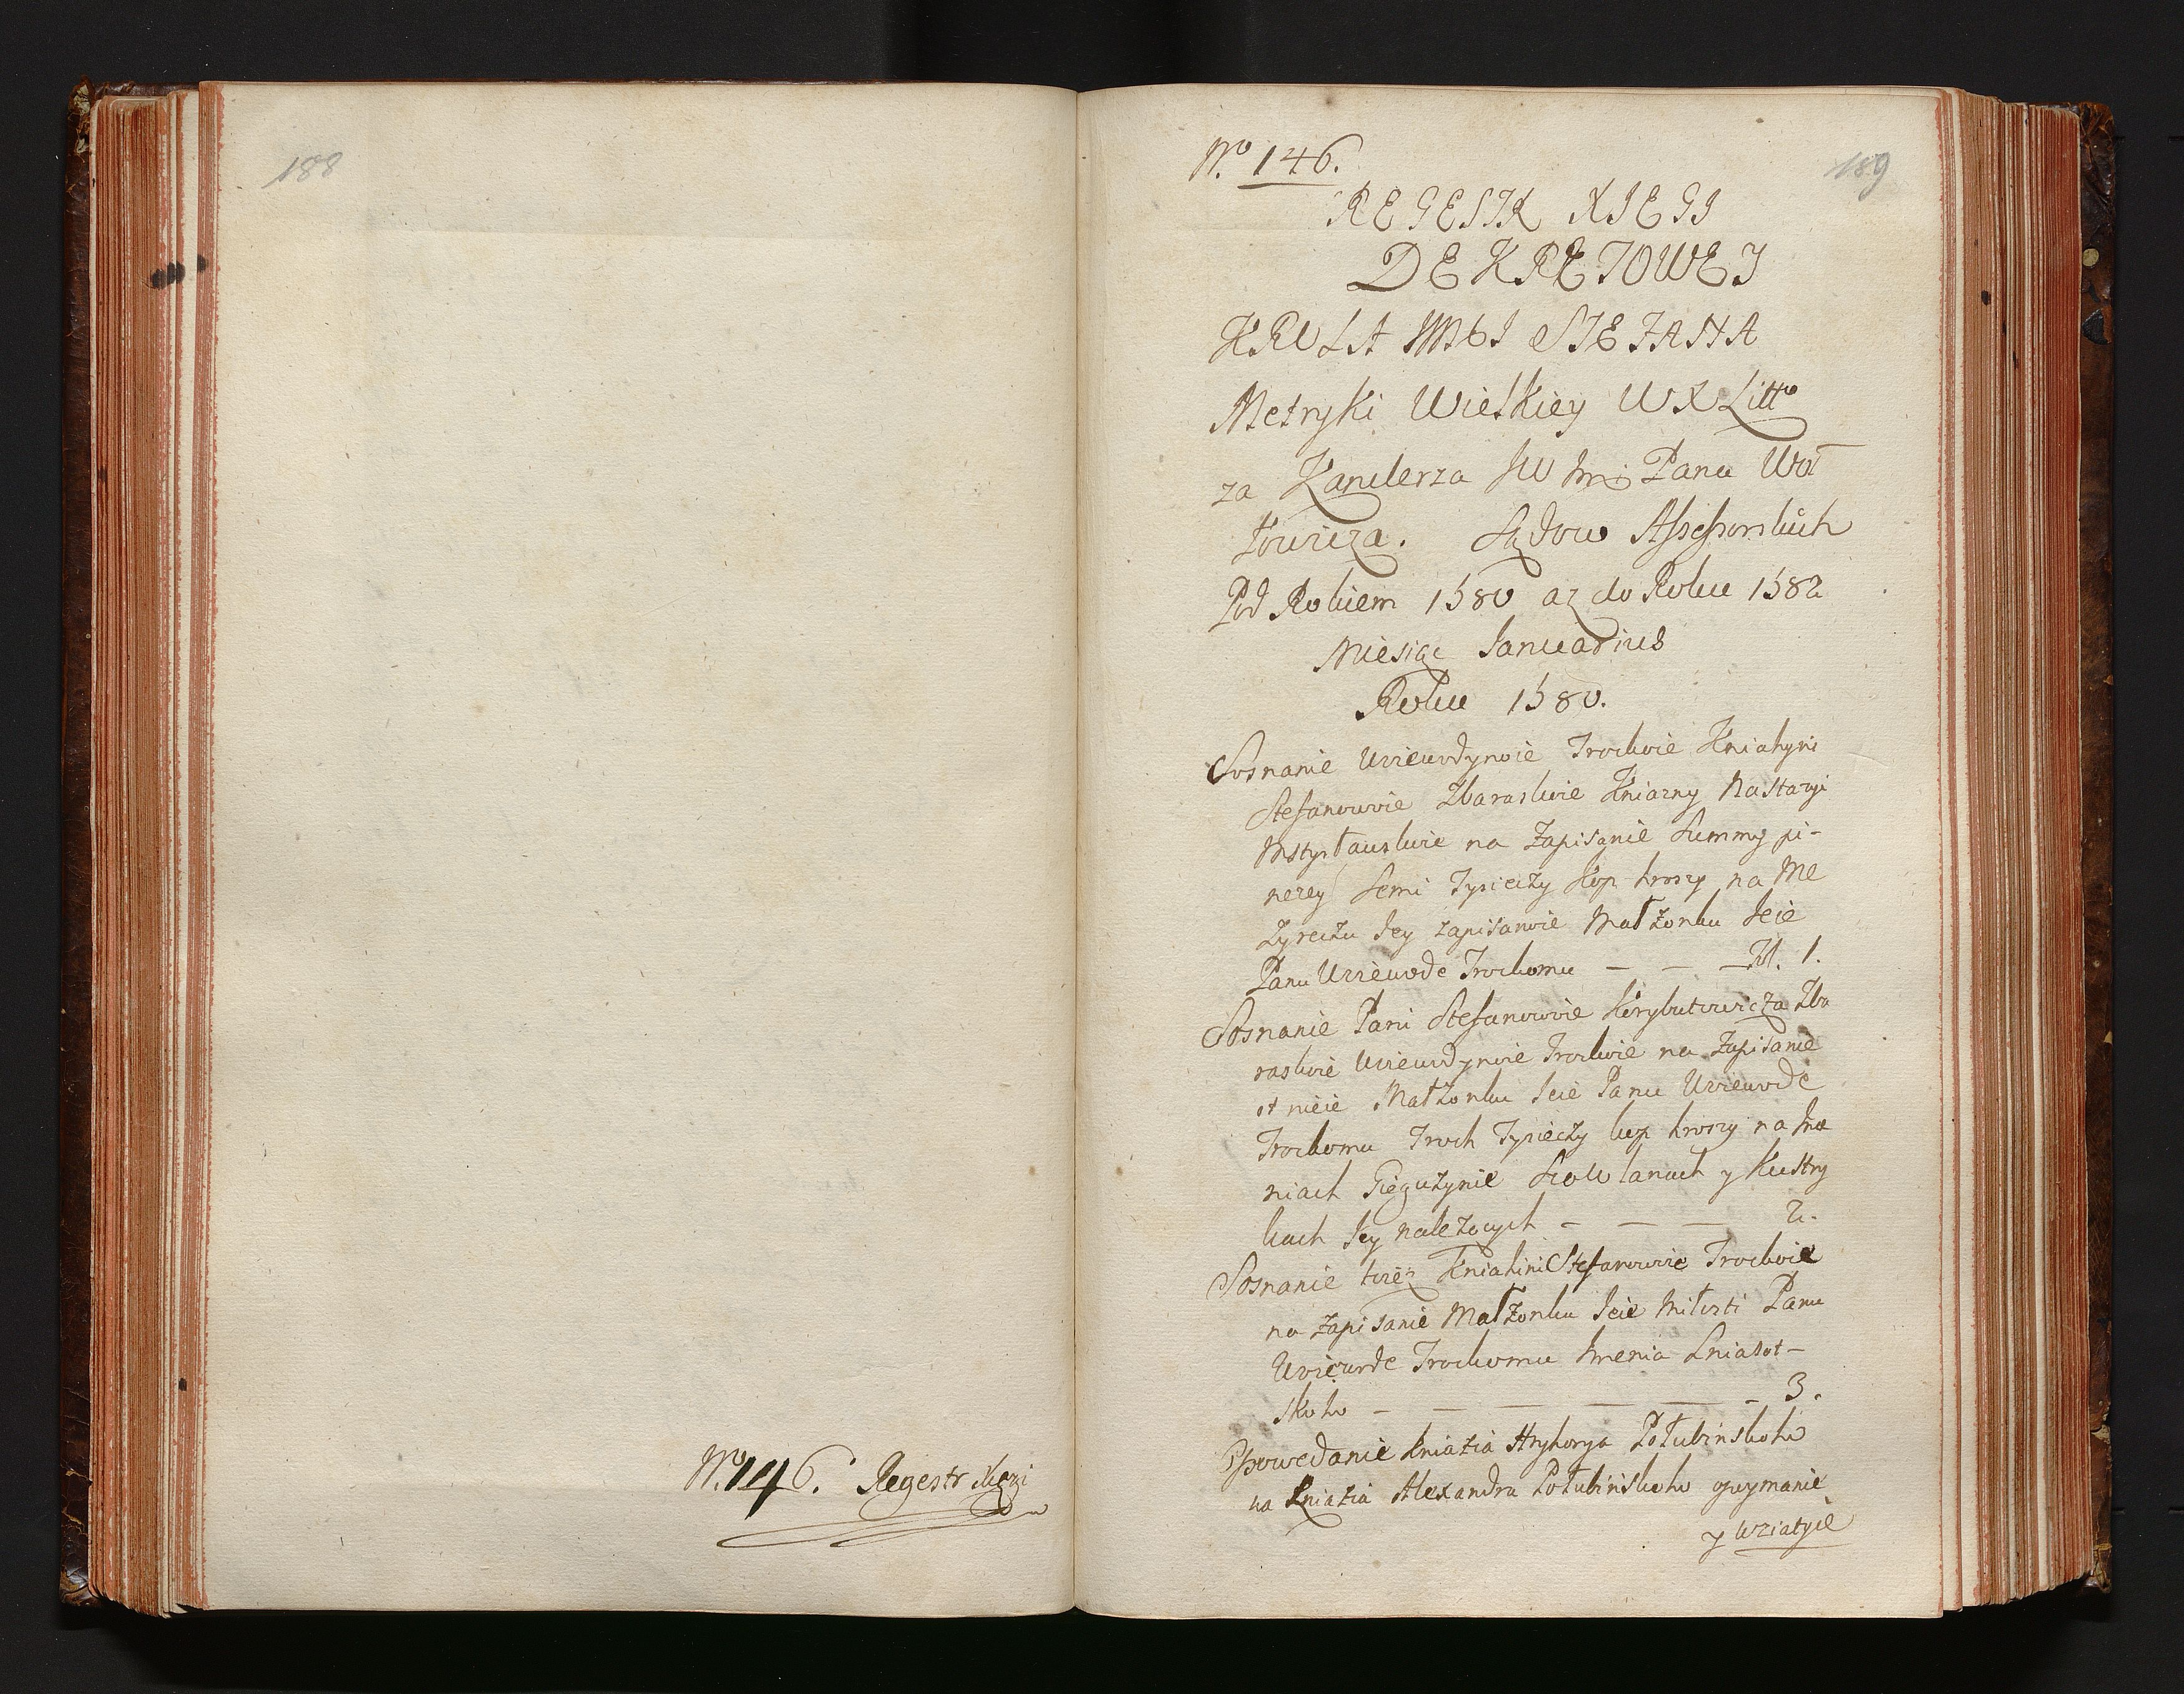 188
No. 146. Regestr Xięgi
No. 146.
189
REGESTR XIĘGI
DEKRETOWEJ
KRULA IMCI STEFANA
Metryki Wielkiey W X Litto
za Kanclerza JW Jmci Pana Woł
łowicza. Sądow Assessorskich
Pod Rokiem 1580 az do Roku 1582
Miesiąc Januarius
Roku 1580.
Sosnanie Wiewodynoie Trockoie Kniahyni
Stefanowoie Zbaraskoie Kniazny Nastazyi
Mstysławskoie na Zapisanie Summy pi-
nezey Semi Tysieczy Kop hroszy na Me
zyreczu Jey zapisanoie Małzonku Jeie
Panu Wiewode Trockomu — — — Fol. 1.
Sosnanie Pani Stefanowoie Korybutowicza Zba
raskoie Wiewodynoie Trockoie na Zapisanie
ot nieie Małzonku Jeie Panu Wiewode
Trockomu Troch Tysieczy kop hroszy na Jme
niach Giegużynie Skowlanach y Kustry
kach Jey należocych — — — 2.
Sosnanie toież Kniahini Stefanowoie Trockoie
na zapisanie Małzonku Jeie Miłosti Panu
Wiewode Trockomu Jmenia Sniasot-
skoho — — — — — 3.
Opowedanie kniazia Hryhorya Połubinskoho
na Kniazia Alexandra Połubinskoho o poymanie
y wziatyie